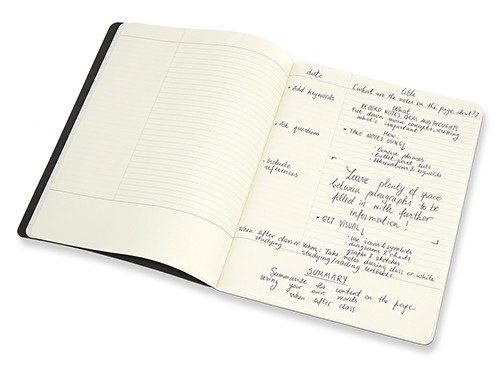 date
title
(what are the notes on the page about?)
• Add keywords
• Ask questions
• Include
references
When: after class or
studying
What
RECORD NOTES, IDEAS AND THOUGHTS
Put down main concepts, summary
what's important
How:
• TAKE NOTES USING
- Concise phrases
- Bullet point lists
- Abbreviations & keywords
Leave plenty of space
between paragraphs to be
filled in with further
information!
• GET VISUAL
- use icons & symbols
- diagrams & charts
- graphs & sketches
When: Take notes during class or while
studying/reading textbooks
SUMMARY
Summarize the content on the page
using your own words.
When: after class